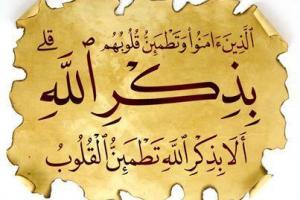 ٱلَّذِينَ ءَامَنُوا۟ وَتَطْمَئِنُّ قُلُوبُهُم
بِذِكْرِ ٱللَّهِ ۗ
أَلَا بِذِكْرِ ٱللَّهِ تَطْمَئِنُّ ٱلْقُلُوبُ